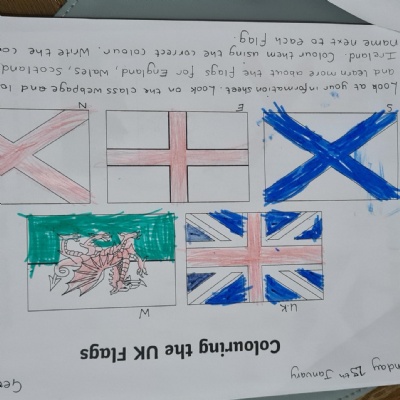 nday 25th January
Colouring the UK Flags
UK W
S E N
Look at your information sheet. Look on the class webpage and
and learn more about the flags for England, Wales, Scotland
Ireland. Colour them using the correct colour. Write the
name next to each flag.